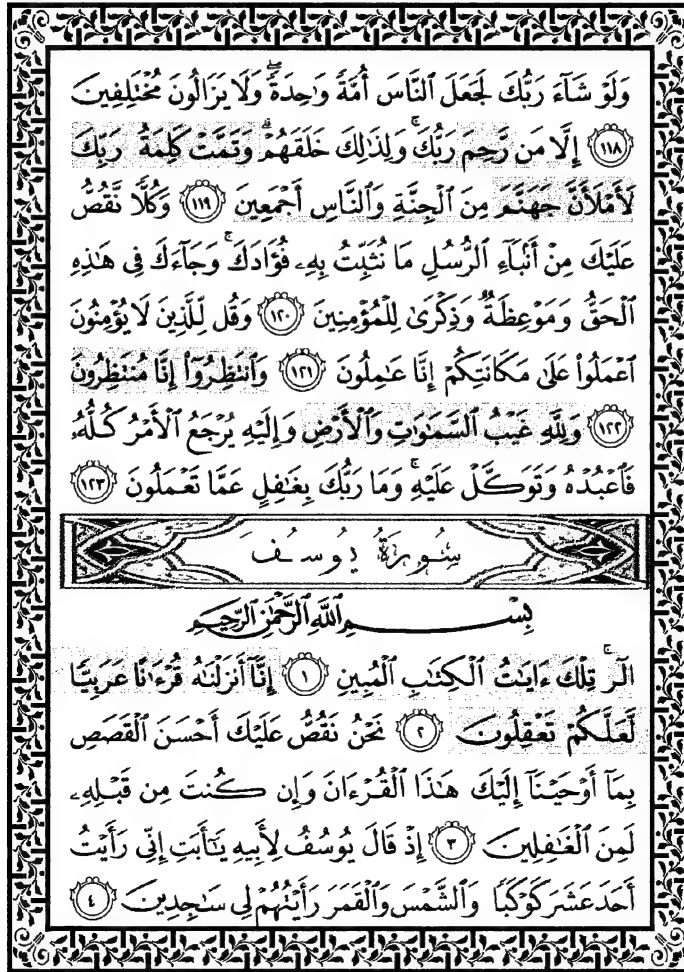 وَلَوْ شَآءَ رَبُّكَ لَجَعَلَ ٱلنَّاسَ أُمَّةً وَٰحِدَةً ۖ وَلَا يَزَالُونَ مُخْتَلِفِينَ
١١٨ إِلَّا مَن رَّحِمَ رَبُّكَ ۚ وَلِذَٰلِكَ خَلَقَهُمْ ۗ وَتَمَّتْ كَلِمَةُ رَبِّكَ
لَأَمْلَأَنَّ جَهَنَّمَ مِنَ ٱلْجِنَّةِ وَٱلنَّاسِ أَجْمَعِينَ ١١٩ وَكُلًّا نَّقُصُّ
عَلَيْكَ مِنْ أَنۢبَآءِ ٱلرُّسُلِ مَا نُثَبِّتُ بِهِۦ فُؤَادَكَ ۚ وَجَآءَكَ فِى هَٰذِهِ
ٱلْحَقُّ وَمَوْعِظَةٌ وَذِكْرَىٰ لِلْمُؤْمِنِينَ ١٢٠ وَقُل لِّلَّذِينَ لَا يُؤْمِنُونَ
ٱعْمَلُوا۟ عَلَىٰ مَكَانَتِكُمْ إِنَّا عَٰمِلُونَ ١٢١ وَٱنتَظِرُوٓا۟ إِنَّا مُنتَظِرُونَ
١٢٢ وَلِلَّهِ غَيْبُ ٱلسَّمَٰوَٰتِ وَٱلْأَرْضِ وَإِلَيْهِ يُرْجَعُ ٱلْأَمْرُ كُلُّهُۥ
فَٱعْبُدْهُ وَتَوَكَّلْ عَلَيْهِ ۚ وَمَا رَبُّكَ بِغَٰفِلٍ عَمَّا تَعْمَلُونَ ١٢٣
سُورَةُ يُوسُفَ
بِسْمِ ٱللَّهِ ٱلرَّحْمَٰنِ ٱلرَّحِيمِ
الٓر ۚ تِلْكَ ءَايَٰتُ ٱلْكِتَٰبِ ٱلْمُبِينِ ١ إِنَّآ أَنزَلْنَٰهُ قُرْءَٰنًا عَرَبِيًّا
لَّعَلَّكُمْ تَعْقِلُونَ ٢ نَحْنُ نَقُصُّ عَلَيْكَ أَحْسَنَ ٱلْقَصَصِ
بِمَآ أَوْحَيْنَآ إِلَيْكَ هَٰذَا ٱلْقُرْءَانَ وَإِن كُنتَ مِن قَبْلِهِۦ
لَمِنَ ٱلْغَٰفِلِينَ ٣ إِذْ قَالَ يُوسُفُ لِأَبِيهِ يَٰٓأَبَتِ إِنِّى رَأَيْتُ
أَحَدَ عَشَرَ كَوْكَبًا وَٱلشَّمْسَ وَٱلْقَمَرَ رَأَيْتُهُمْ لِى سَٰجِدِينَ ٤